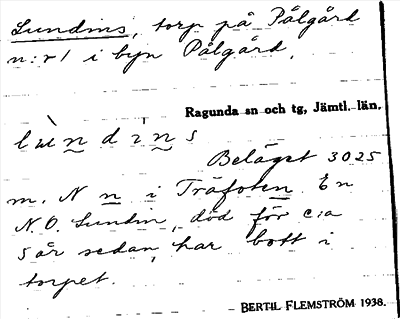 Lundins, torp på Pålgård
n:r 1 i byn Pålgård.
Ragunda sn och tg, Jämtl. län.
Beläget 3025
m. N n i Träfoten. En
N.O. Lundin, död för c:a
5 år sedan, har bott i
torpet.
BERTIL FLEMSTRÖM 1938.